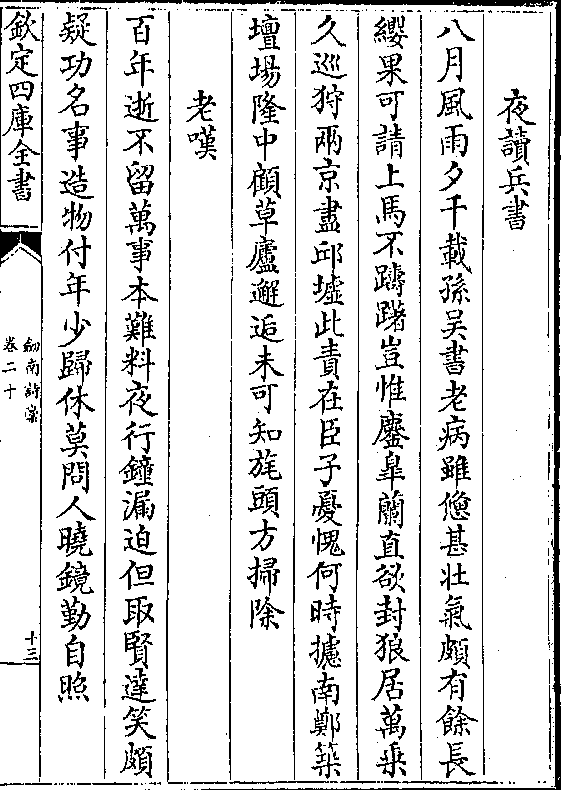 夜讀兵書
八月風雨夕千載孫吳書老病雖憊甚壯氣頗有餘長
纓果可請上馬不躊躇豈惟鏖臯蘭直欲封狼居萬乗
久巡狩兩京盡邱墟此責在臣子憂愧何時攄南鄭築
壇場隆中顧草廬邂逅未可知旄頭方掃除
老嘆
百年逝不留萬事本難料夜行鐘漏迫但取賢達笑頗
疑功名事造物付年少歸休莫問人曉鏡勤自照
欽定四庫全書
劒南詩槀
卷二十
十三